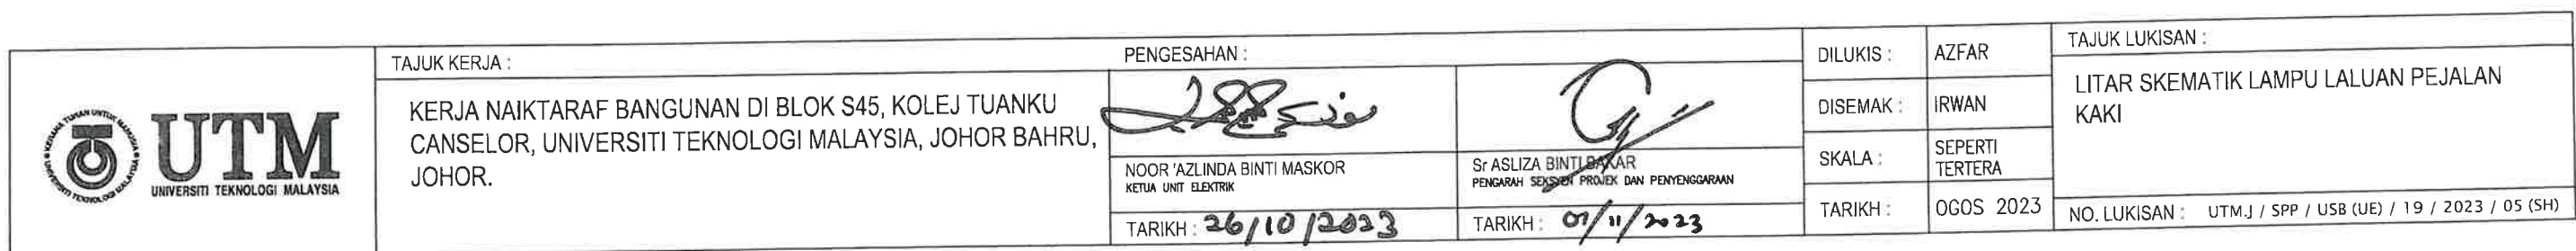 KERANA TUHAN UNTUK MANUSIA
UNIVERSITI TEKNOLOGI MALAYSIA
UTM
UNIVERSITI TEKNOLOGI MALAYSIA
TAJUK KERJA :
KERJA NAIKTARAF BANGUNAN DI BLOK S45, KOLEJ TUANKU
CANSELOR, UNIVERSITI TEKNOLOGI MALAYSIA, JOHOR BAHRU,
JOHOR.
PENGESAHAN :
NOOR 'AZLINDA BINTI MASKOR
KETUA UNIT ELEKTRIK
TARIKH : 26/10/2023
Sr ASLIZA BINTI BAKAR
PENGARAH SEKSYEN PROJEK DAN PENYENGGARAAN
TARIKH : 01/11/2023
DILUKIS : AZFAR
DISEMAK : IRWAN
SKALA : SEPERTI
TERTERA
TARIKH : OGOS 2023
TAJUK LUKISAN :
LITAR SKEMATIK LAMPU LALUAN PEJALAN
KAKI
NO. LUKISAN : UTM.J / SPP / USB (UE) / 19 / 2023 / 05 (SH)